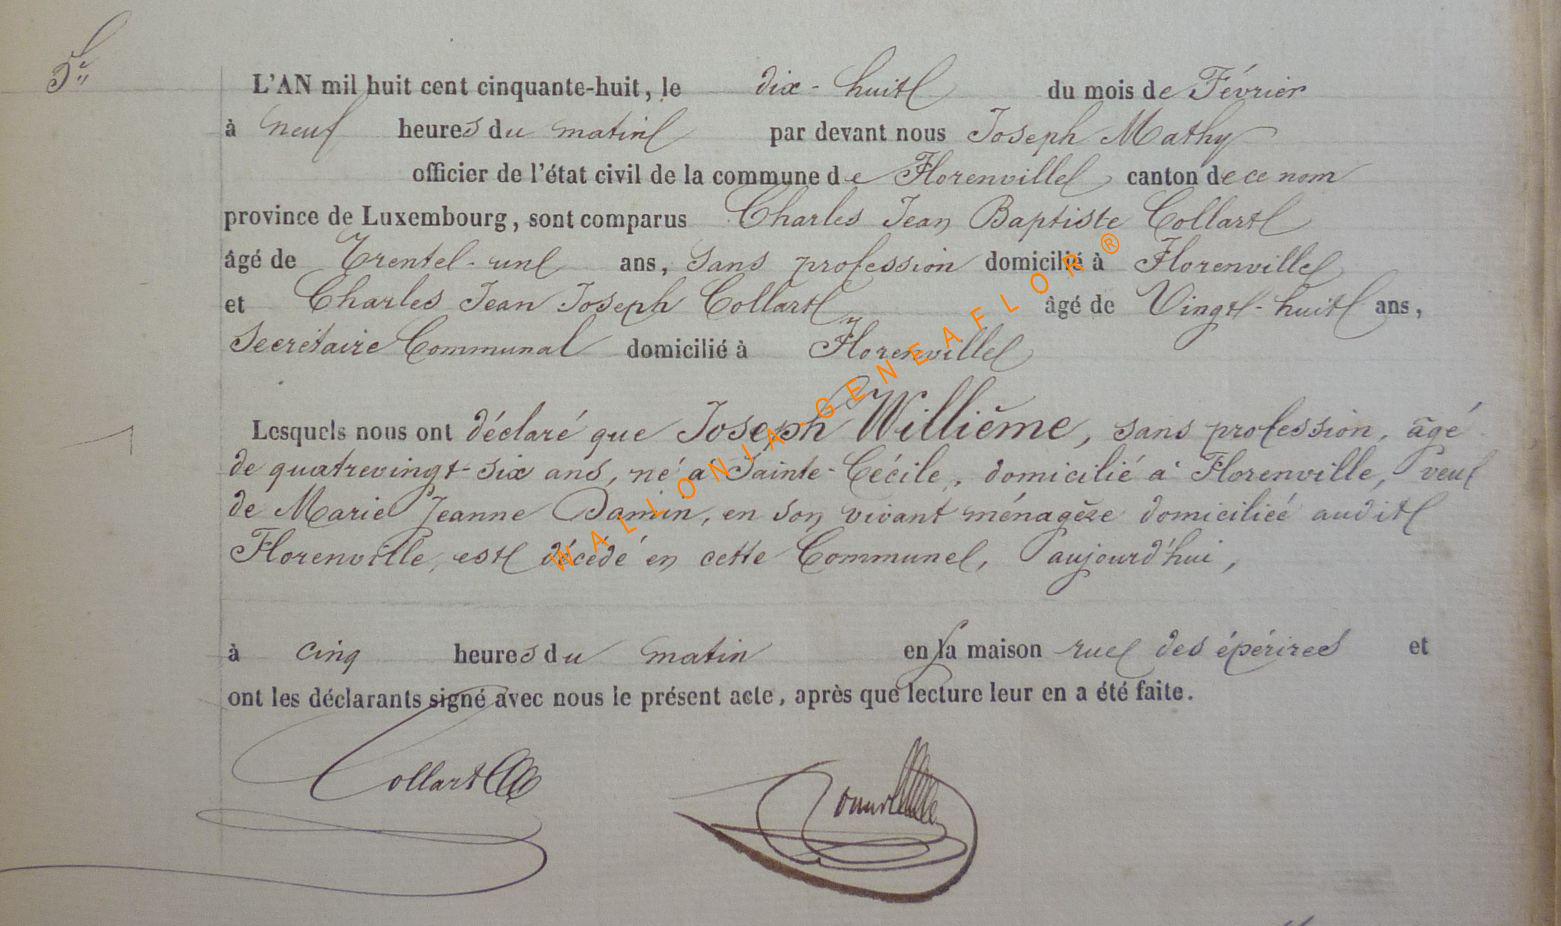 5e
L'AN mil huit cent cinquante-huit, le dix-huit du mois de Février
à neuf heures du matin par devant nous Joseph Mathy
officier de l'état civil de la commune de Florenville, canton de ce nom
province de Luxembourg, sont comparus Charles Jean Baptiste Collart
âgé de Trente-un ans, sans profession domicilié à Florenville
et Charles Jean Joseph Collart, âgé de Vingt-huit ans,
Secrétaire Communal domicilié à Florenville
Lesquels nous ont déclaré que Joseph Willième, sans profession, âgé
de quatrevingt-six ans, né à Sainte-Cécile, domicilié à Florenville, veuf
de Marie Jeanne Damin, en son vivant ménagère domiciliée audit
Florenville, est décédé en cette Commune, aujourd'hui,
à cinq heures du matin en sa maison rue des et
ont les déclarants signé avec nous le présent acte, après que lecture leur en a été faite.
Collart
WALLONIA-GENEAFLOR®